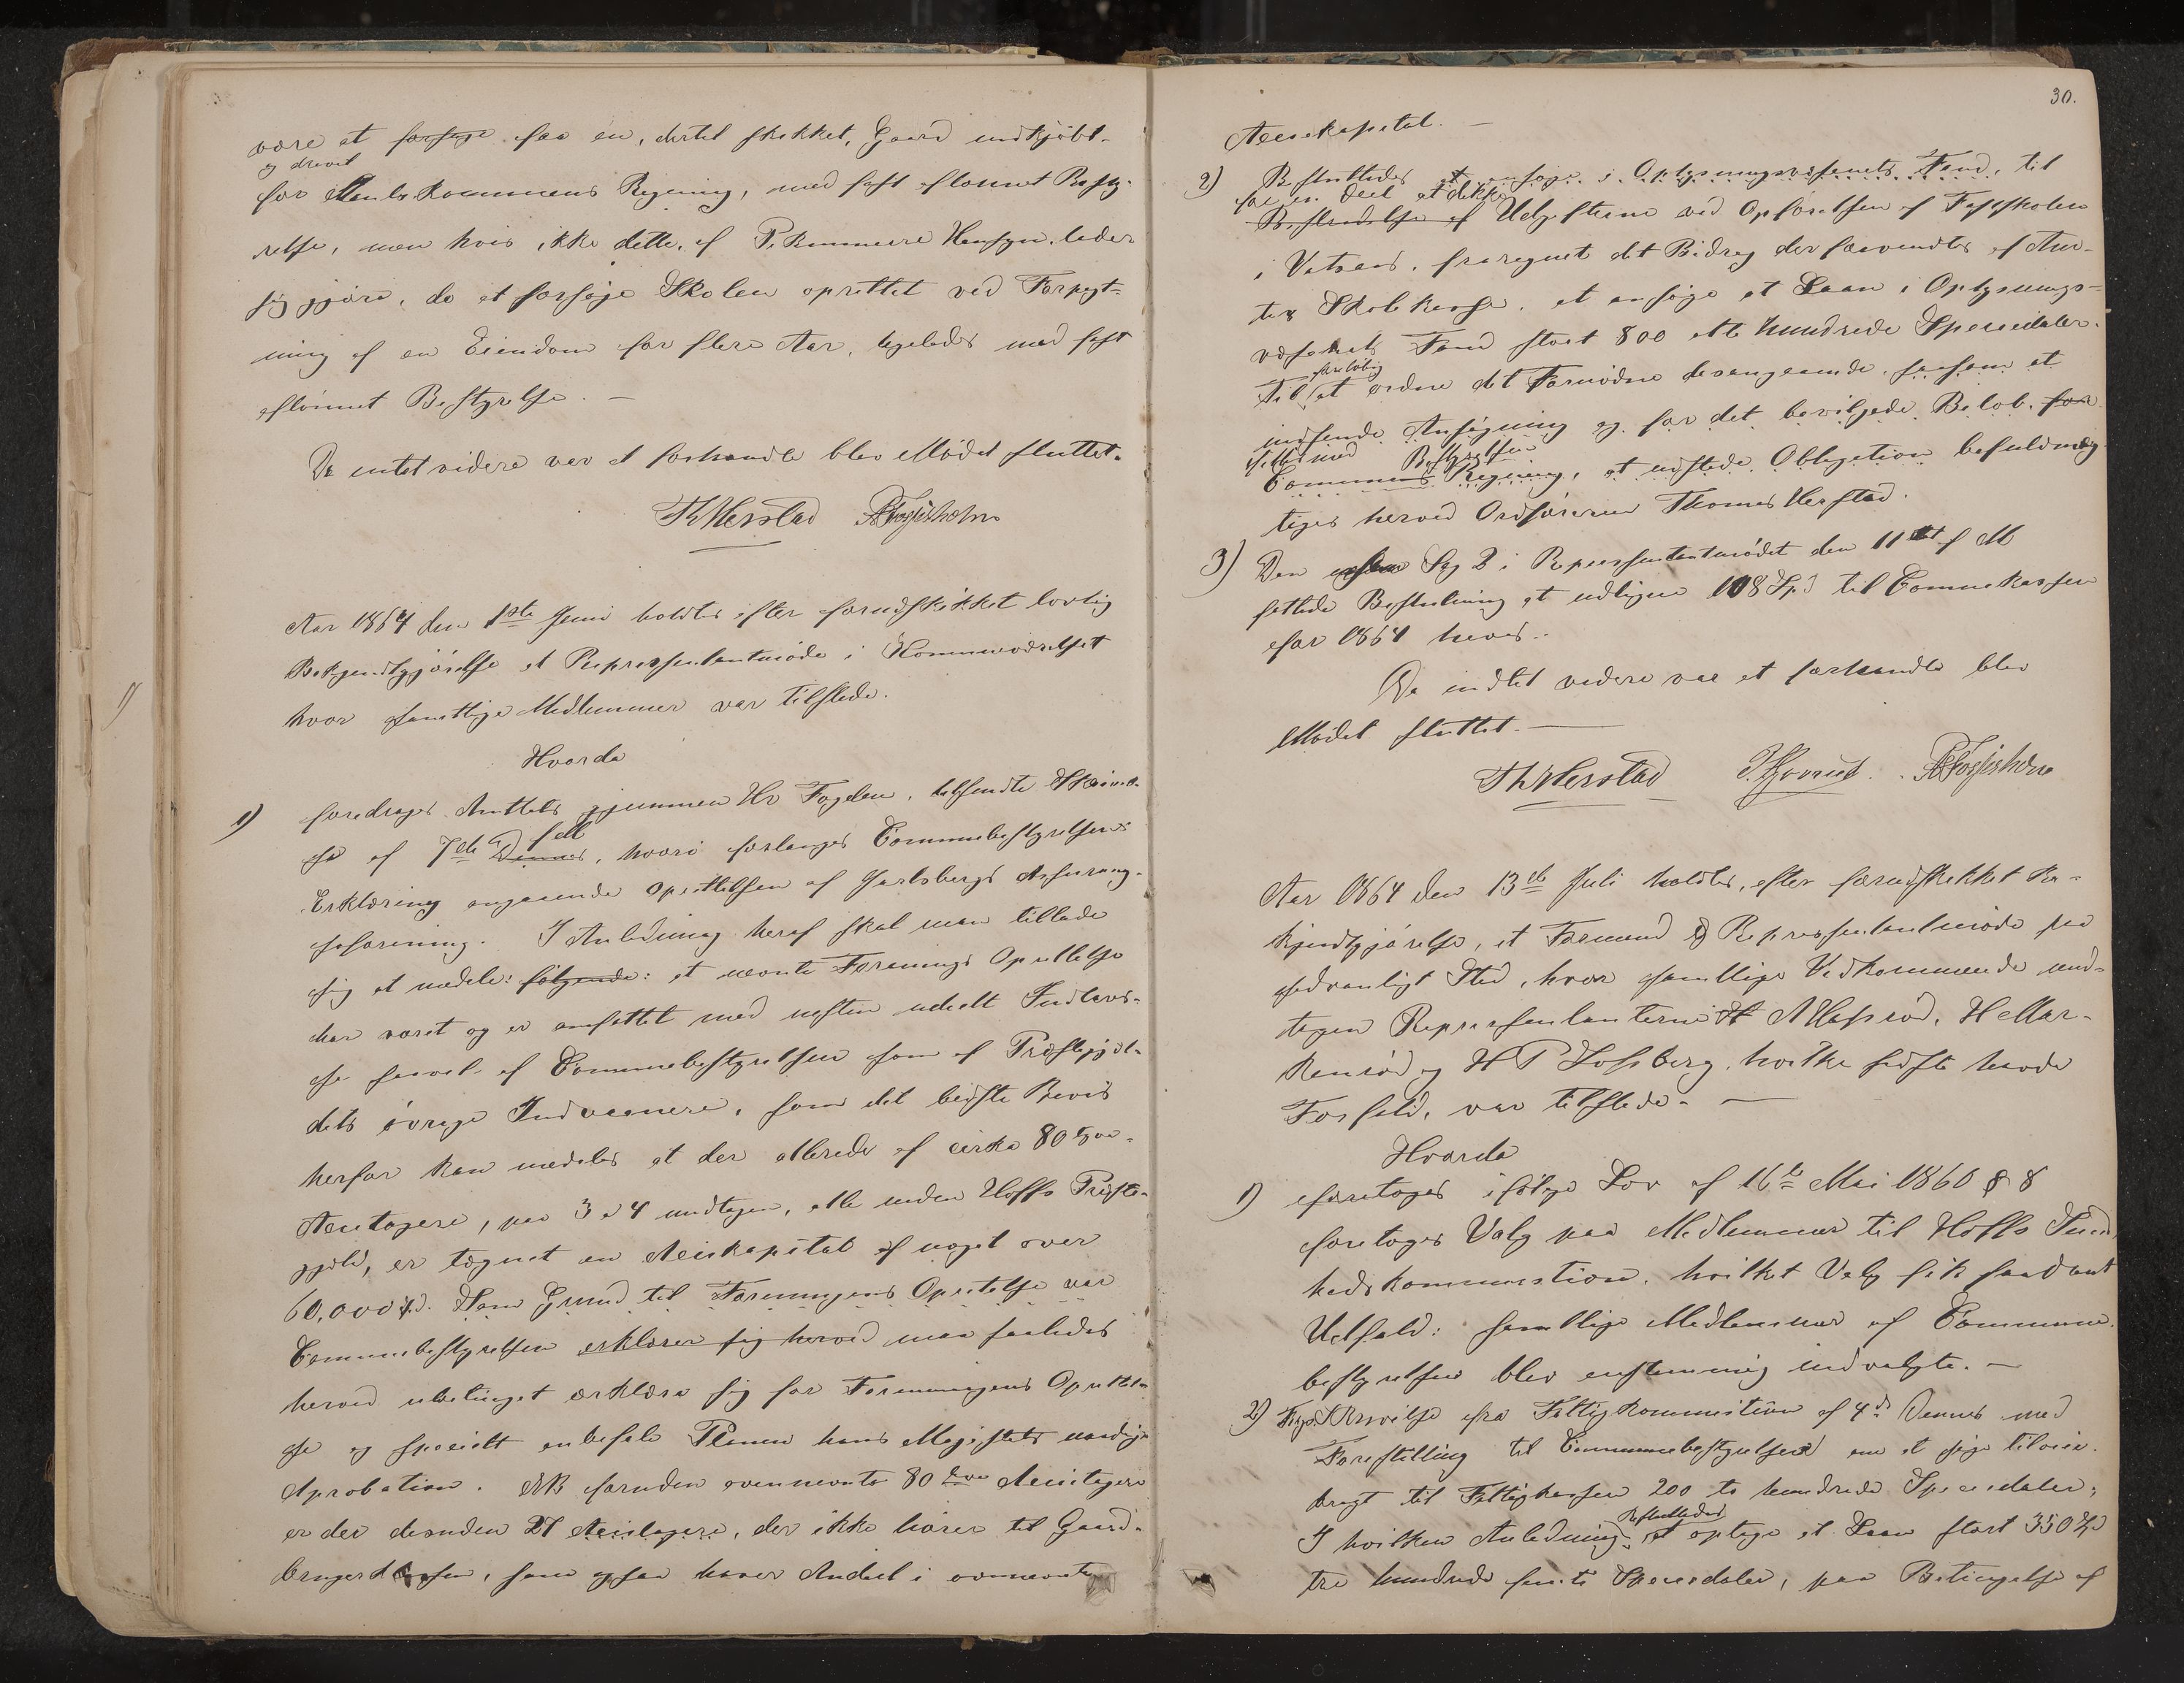 være at forsøge faa en, dertil skikket, Gaard indkjøbt
og drevet
for Amts Kommunens Regning, med fast aflønnet Besty-
relse, men hvis ikke dette, af Pekuniære Hensyn, lader
sig gjøre, da at forsøge Skolen oprettet ved Forpagt-
ning af en Eiendom for flere Aar, ligeledes med fast
aflønnet Bestyrelse. —
Da intet videre var at forhandle blev Mødet sluttet.
Th Herstad A Fossisholm
Aar 1864 den 1ste Juni holdtes efter forudskikket lovlig
Bekjendtgjørelse et Repræsentantmøde i Kommuneværelset
hvor samtlige Medlemmer var tilstede.
Hvorda
1) foredroges Amtets gjennem Hr Fogden, tilsendte Skrivel-
se af 7de Dennes, f M hvori forlanges Communebestyrelsens
Erklæring angaaende oprettelsen af Jarlsbergs Assurance-
forening. I Anledning heraf skal man tillade
sig at meddele: følgende: at nævnte Forenings Oprettelse
har været og er omfattet med næsten udeelt Interes-
se saavel af Communebestyrelsen som af Præstegjæl-
dets øvrige Indvaanere, som det bedste Bevis
herfor kan meddeles at der allerede af cirka 80
Actietagere, paa 3 a 4 undtagen, alle inden Hoffs Præste-
gjeld, er tegnet en Actiekapital af noget over
60,000 Spd. Som Grund til Foreningens Oprettelse var
Communebestyrelsen erklærer sig herved maa saaledes
herved ubetinget erklære sig for Foreningens Oprettel-
se og specielt anbefale Planen hans Majestæts naadige
Aprobation. NB foruden ovennævnte 80 Actietagere
er der desuden 27 Actietagere, der ikke hører til Gaard-
brugerklassen, som ogsaa haver Andeel i ovennævnte
30.
Actiekapital. —
2) Besluttedes at ansøge i Oplysningsvæsenets Fond, til
for en Deel at dække
Bestridelse af Udgifterne ved Opførelsen af Fastskolen
i Vatsaas, fraregnet det Bidrag der forventes af Am-
tets Skolekasse, at ansøge et Laan i Oplysnings-
væsenets Fond stort 800 otte hundrede Speciedaler.
foreløbig
Til at ordne det Fornødne desangaaende, saasom at
indsende Ansøgning og for det bevilgede Beløb, for
tillige med Bestyrelsen
Communens Regning, at udstede Obligation befuldmæg-
tiges herved Ordføreren Thomas Herstad.
3) Den under Sag 2 i Repræsentantmødet den 11te f M
fattede Beslutning at udligne 108 Spd til Communekassen
for 1864 hæves..
Da indtet videre var at forhandle blev
Mødet sluttet. —
Th Herstad A Fossisholm
Aar 1864 den 13de Juli holdtes, efter forudskikket Be-
kjendtgjørelse, et Formand og Repræsentantmøde paa
sædvanligt Sted, hvor samtlige Vedkommende und-
tagen Repræsentanterne A Hassrød, H Mar-
kensrød og H P Solsberg, hvilke sidste havde
Forfald, var tilstede. —
Hvorda
1) foretoges ifølge Lov af 16de Mai 1860 § 8
foretoges Valg paa Medlemmer til Hoffs Sund-
hedskommission, hvilket Valg fik saadant
Udfald: samtlige Medlemmer af Commune-
bestyrelsen blev enstemmig indvalgte. —
2) Skrivelse fra Fattigkommissionen af 4de Dennes med
Forestilling til Communebestyrelsen om at søge tilveie-
bragt til Fattigkassen 200 to hundrede Speciedaler,
Besluttedes
I hvilken Anledning, at optage et Laan stort 350 Spd
tre hundrede femti Speciedaler, paa Betingelse af